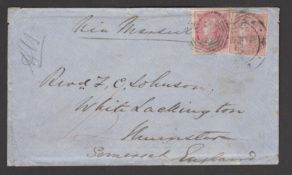 Via Marseilles
Revd F. C. Johnson,
White Lackington
Ilminster
Somerset England